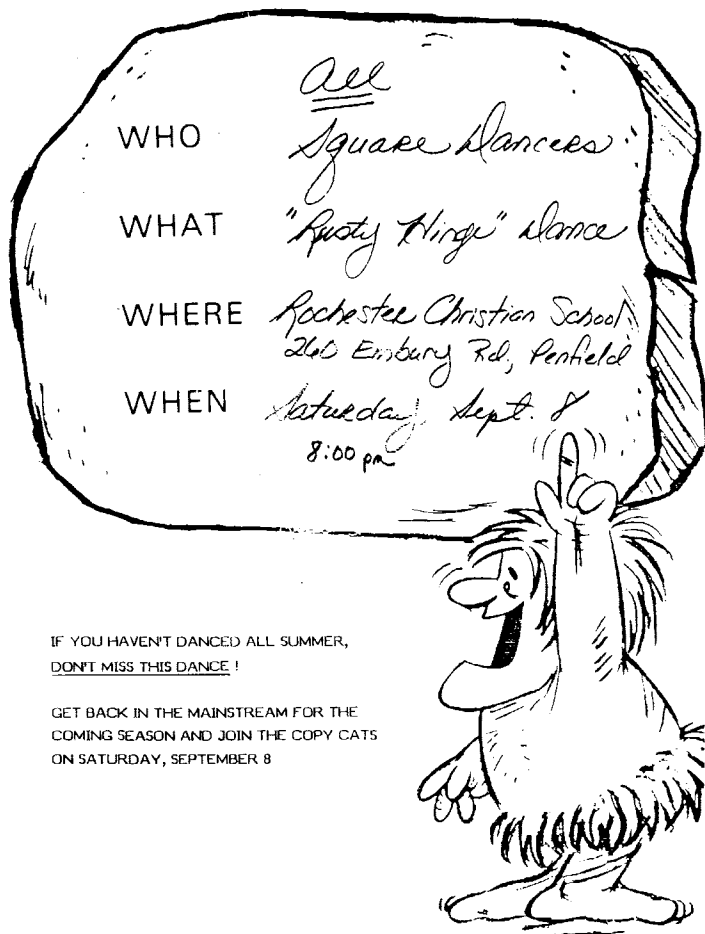 All
WHO Square Dancers
WHAT "Rusty Hinge" Dance
WHERE Rochester Christian School
260 Embury Rd, Penfield
WHEN Saturday, Sept. 8
8:00 pm
IF YOU HAVEN'T DANCED ALL SUMMER,
DON'T MISS THIS DANCE !
GET BACK IN THE MAINSTREAM FOR THE
COMING SEASON AND JOIN THE COPY CATS
ON SATURDAY, SEPTEMBER 8